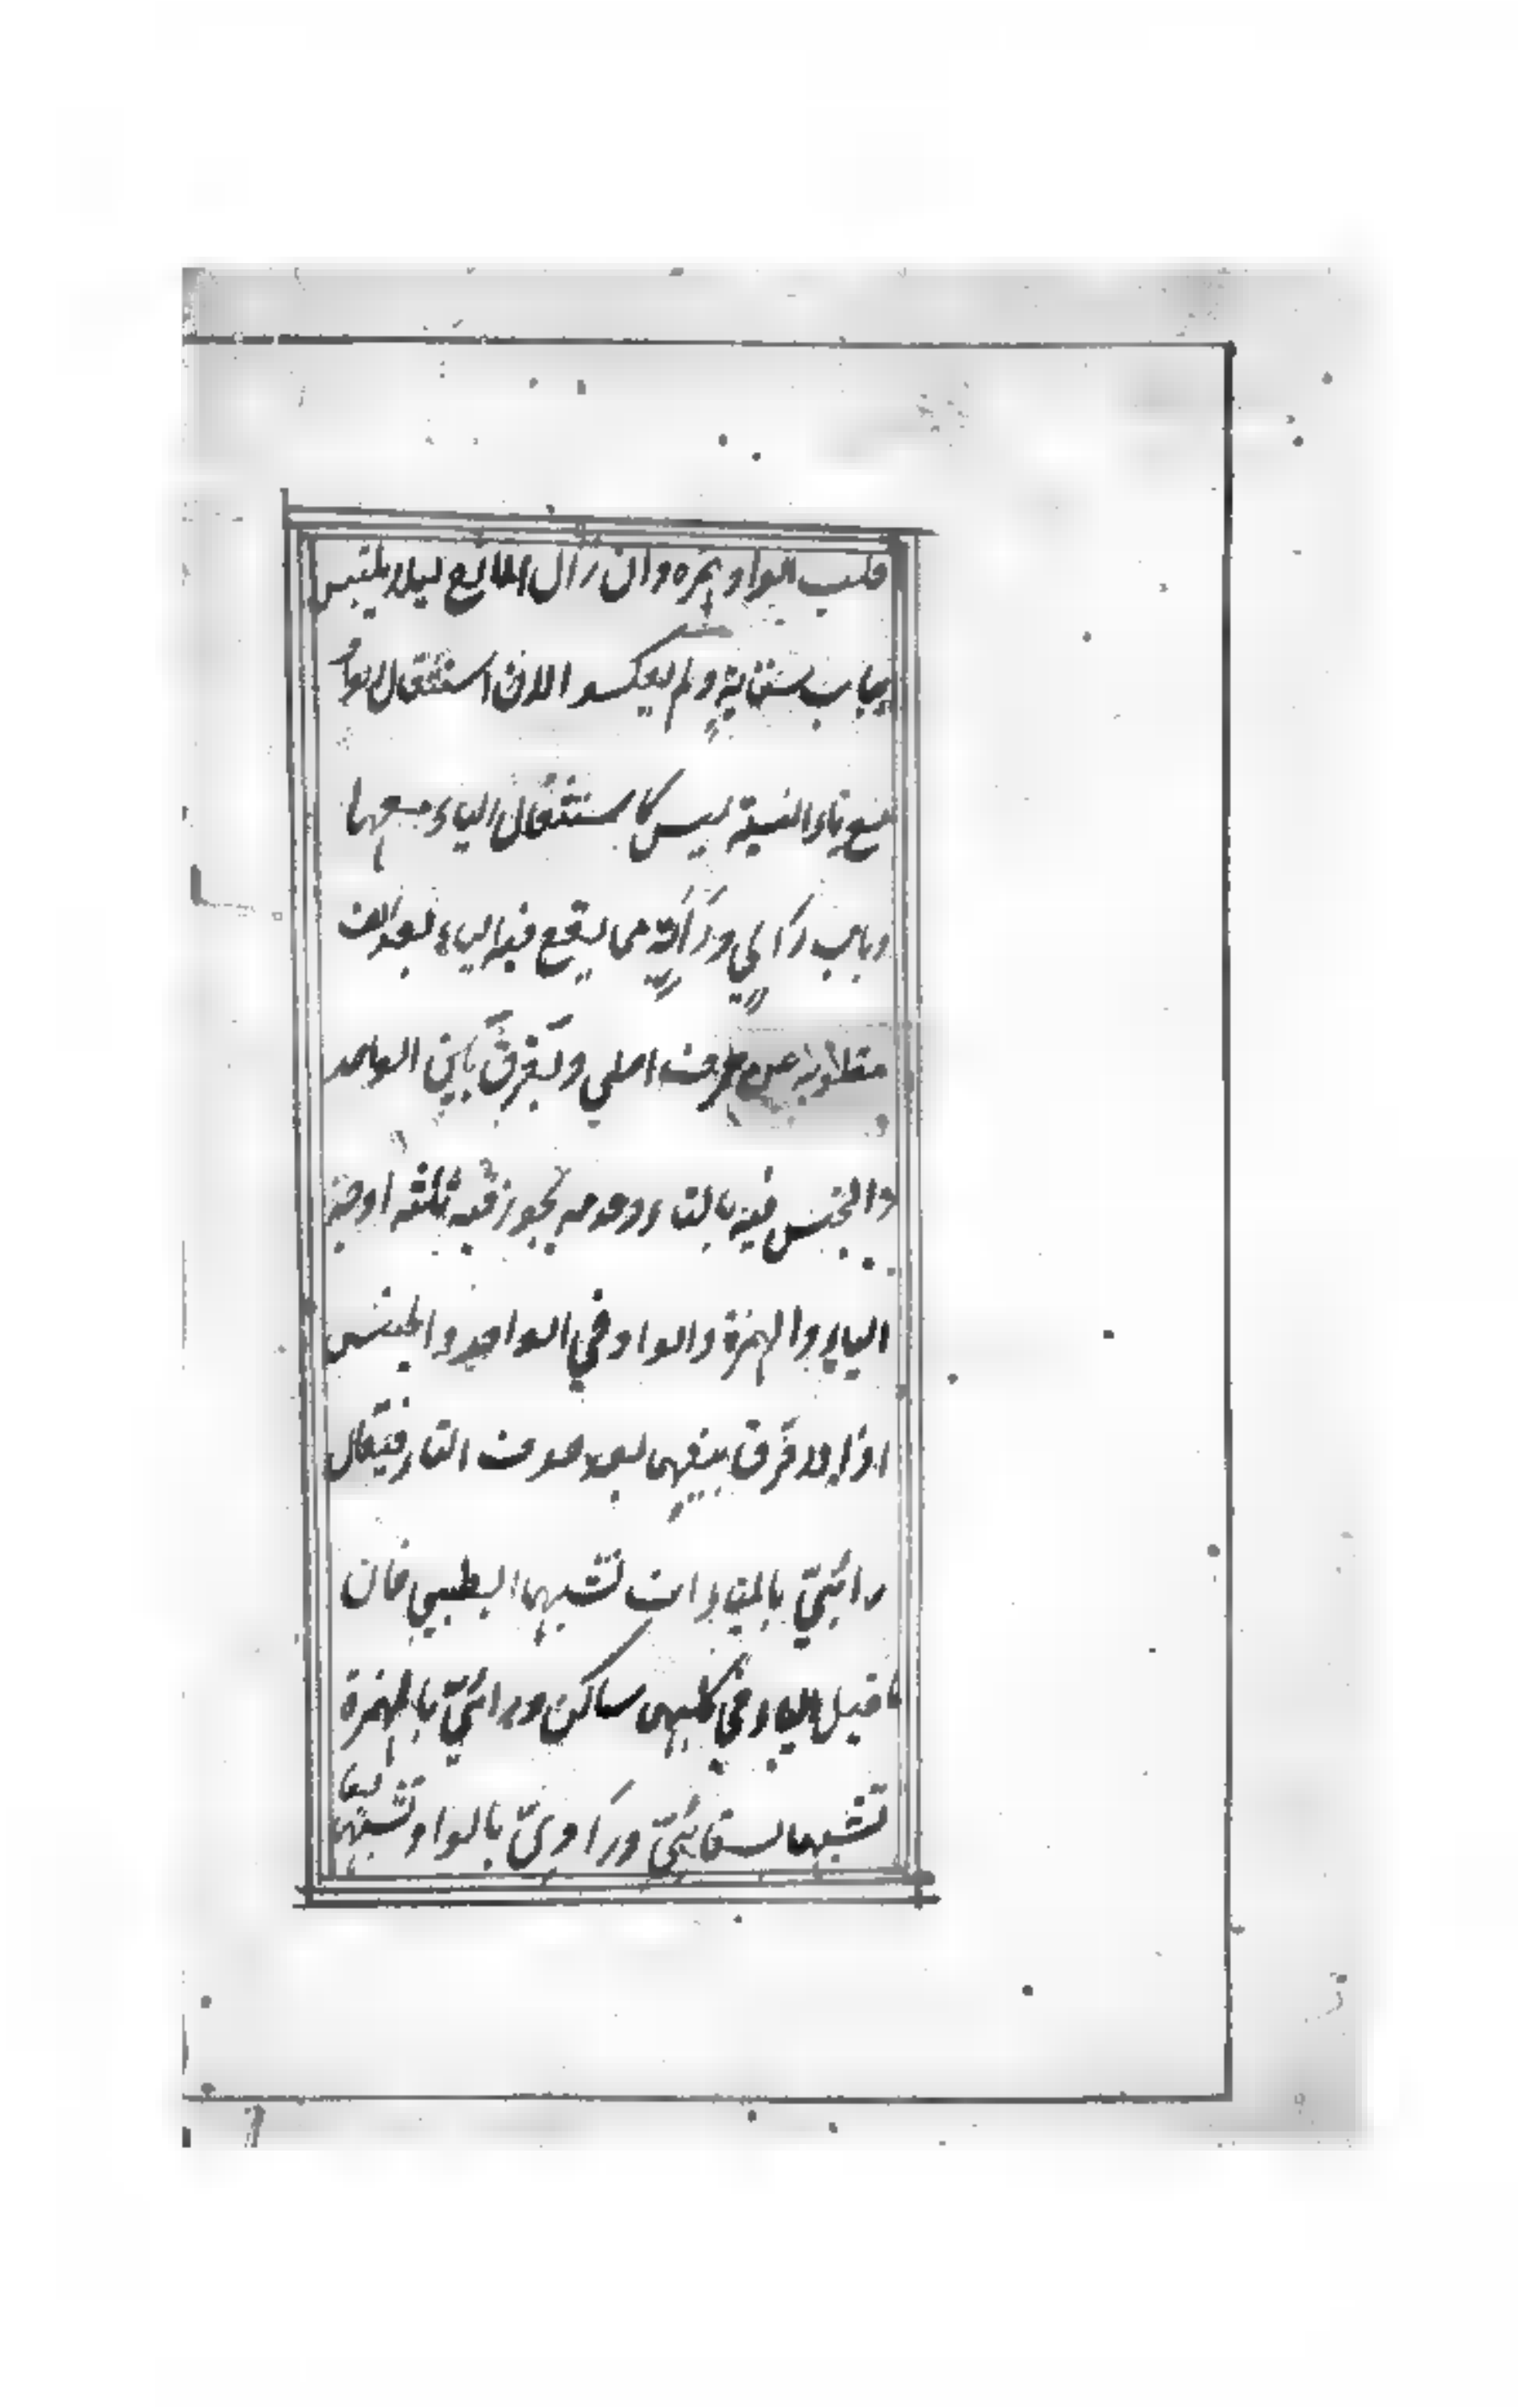 قلب الواو همزه وان زال المانع ليلا يلتبس
بباب سقاية ولم يعكسوا لان استثقال الواو
مع ياء النسبة ليس كاستثقال الياء معها
وباب راي وراية مما يقع فيه الياء بعد الف
مقلوبة عن حرف اصلي ويفرق بين الواحد
والجنس فيه بالتاء وعدمه يجوز فيه ثلثه اوجه
الياء والهمزة والواو في الواحد والجنس
اذ لا فرق بينهما بعد حذف التاء فيقال
رائيي بالياء ات تشبيها بظبيي فان
ما قبل الياء في كليهما ساكن ورائيّ بالهمزة
تشبيها بسقائيّ وراويّ بالواو تشبيها